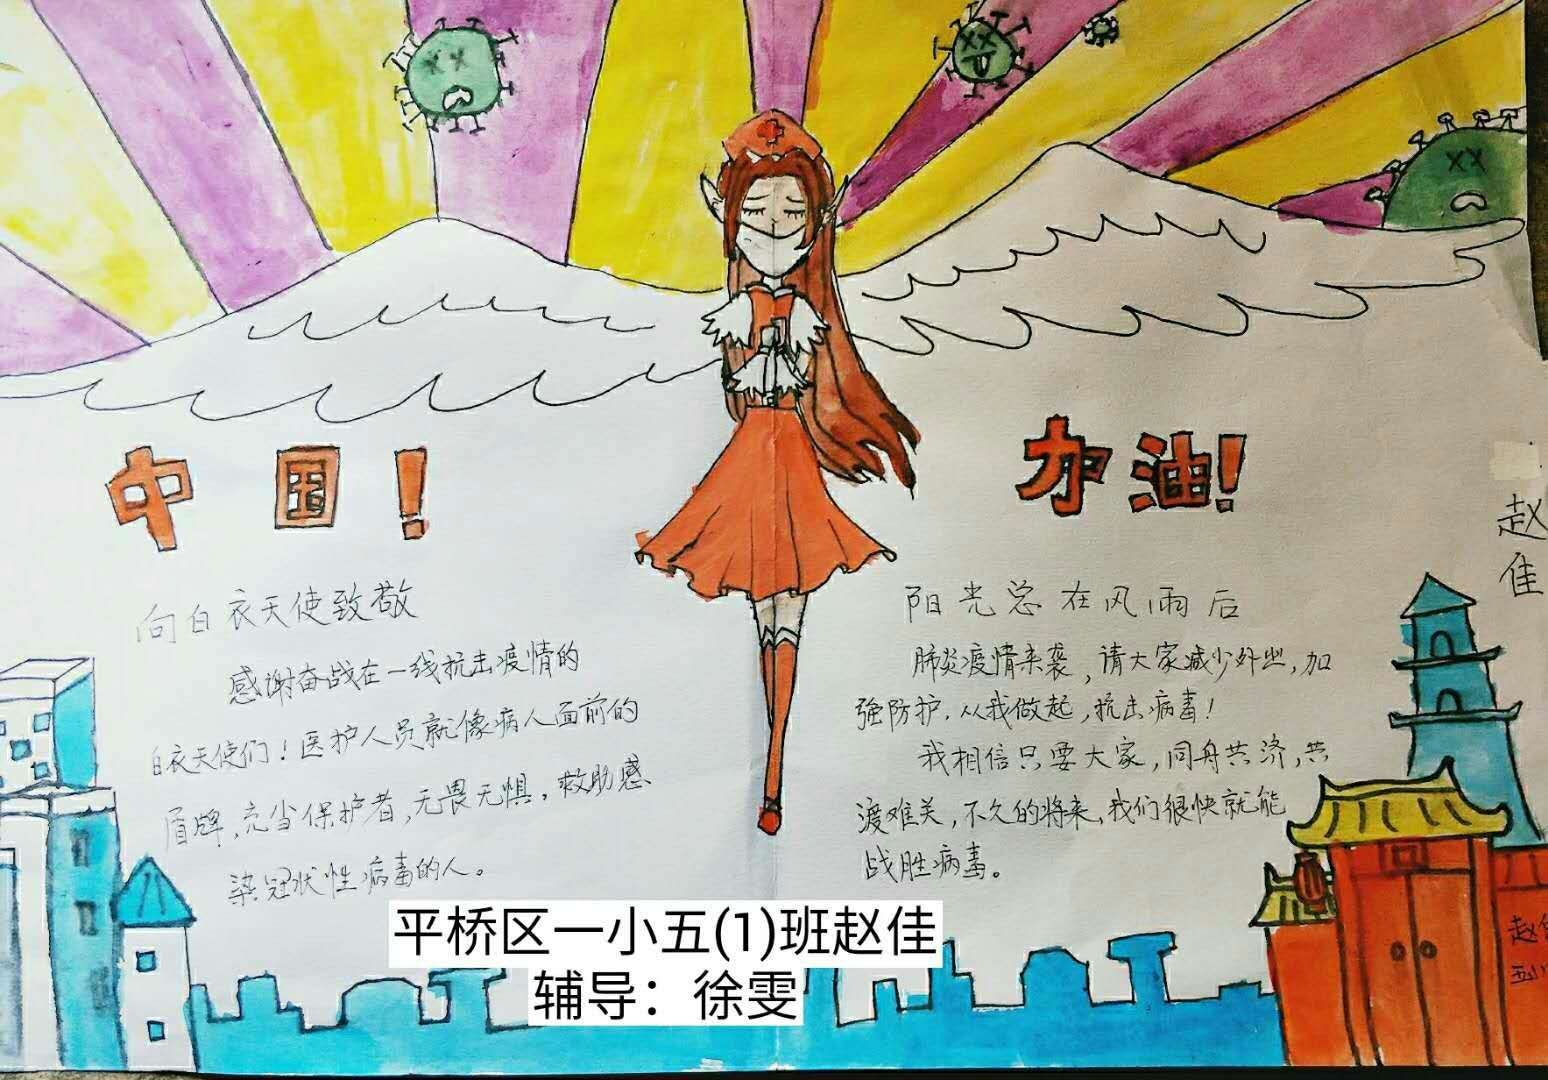 中国!
加油!
赵佳
向白衣天使致敬
感谢奋战在一线抗击疫情的
白衣天使们!医护人员就像病人面前的
盾牌,充当保护者,无畏无惧,救助感
染冠状性病毒的人。
阳光总在风雨后
肺炎疫情来袭,请大家减少外出,加
强防护.从我做起,抗击病毒!
我相信只要大家,同舟共济,共
渡难关,不久的将来,我们很快就能
战胜病毒。
平桥区一小五(1)班赵佳
辅导：徐雯
赵
五